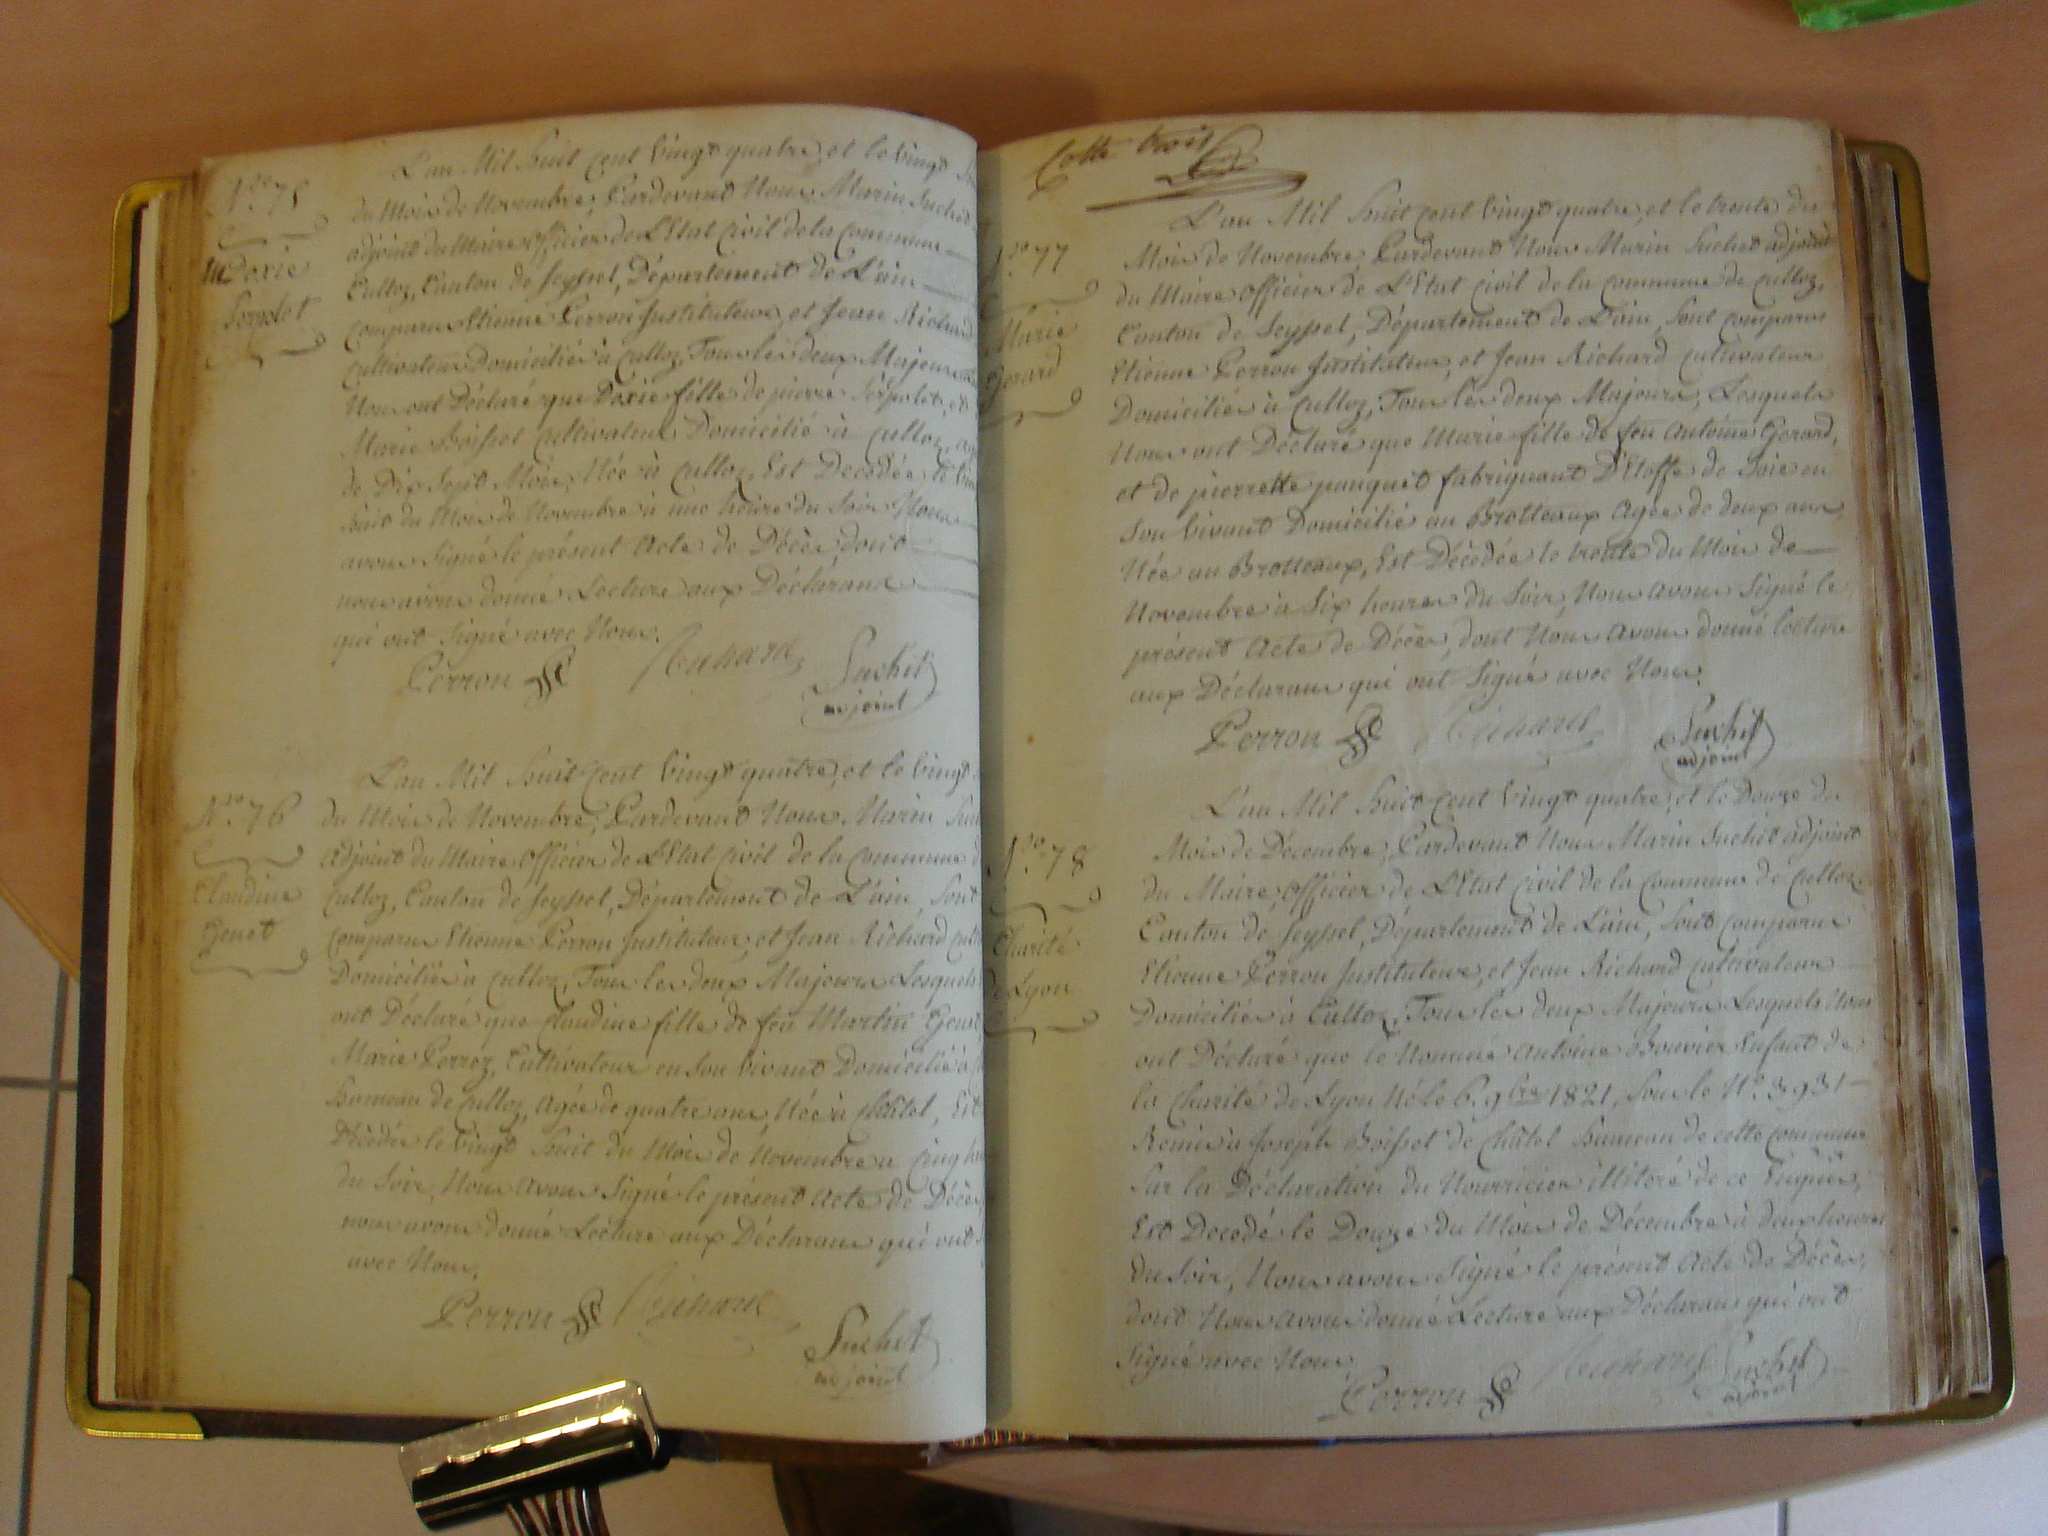 L'an Mil huit cent vingt quatre, et le vingt
N.o 75
du Mois de Novembre, Pardevant Nous Marin Suchet
adjoint du Maire officier de L'Etat Civil de la Commune
Doxie
Serpolet
Culloz, Canton de Seyssel, Département de L'ain
comparus Etienne Perron Instituteur, et Jean Richard
cultivateur Domiciliés à Culloz, Tous les deux Majeurs
Nous ont Déclaré que Doxie fille de pierre Serpolet, et
Marie Boisset cultivateur Domicilié à Culloz,
de Dix Sept Mois, Née à Culloz, Est Decédée le
huit du Mois de Novembre à une heure du Soir Nous
avons Signé le présent Acte de Décès dont
nous avons donné Lecture aux Déclarans
qui ont Signé avec Nous.
Perron Richard Suchet
adjoint
L'an Mil huit Cent vingt quatre, et le vingt
N.o 76
du Mois de Novembre, Pardevant Nous Marin
Adjoint du Maire officier de L'Etat Civil de la Commune
Claudine
Genet
Culloz, Canton de Seyssel, Département de L'ain, Sont
Comparus Etienne Perron Instituteur, et Jean Richard
Domiciliés à Culloz, Tous les deux Majeurs Lesquels
ont Déclaré que Claudine fille de feu Martin Genet
Marie Perroz, Cultivateur en Son vivant Domicilié à
hameau de Culloz, Agée de quatre ans, Née à Châtel, Est
Décédée le vingt huit du Mois de Novembre a Cinq
du Soir, Nous Avons Signé le présent Acte de Décès
nous avons donné Lecture aux Déclarans qui ont
avec Nous.
Perron Richard Suchet
adjoint
Cotte trois
L'an Mil huit cent vingt quatre, et le trente du
N.o 77
Marie
Gerard
Mois de Novembre, Pardevant Nous Marin Suchet adjoint
du Maire officier de L'Etat Civil de la Commune de Culloz,
Canton de Seyssel, Département de L'ain, Sont Comparus
Etienne Perron Instituteur, et Jean Richard Cultivateur
Domiciliés à Culloz, Tous les deux Majeurs, Lesquels
Nous ont Déclaré que Marie fille de feu Antoine Gerard,
et de pierrette panquet fabriquant D'Etoffe de Soie en
Son vivant Domicilié au Brotteaux Agée de deux ans
Née au Brotteaux, Est Décédée le trente du Mois de
Novembre à Six heures du Soir, Nous avons Signé le
présent Acte de Décès, dont Nous Avons donné lecture
aux Déclarans qui ont Signé avec Nous.
Perron Richard Suchet
adjoint
L'an Mil huit Cent vingt quatre, et le Douze du
N.o 78
Charité
de Lyon
Mois de Décembre, Pardevant Nous Marin Suchet adjoint
du Maire, officier de L'Etat Civil de la Commune de Culloz,
Canton de Seyssel, Département de L'ain, Sont Comparus
Etienne Perron Instituteur, et Jean Richard Cultivateur
Domiciliés à Culloz, Tous les deux Majeurs Lesquels Nous
ont Déclaré que le Nommé Antoine Bouvier Enfant de
la Charité de Lyon Né le 6. 9bre 1821, Sous le N.o 3931
Remis à Joseph Boisset de Châtel hameau de cette Commune
Sur la Déclaration du Nourricier illitéré de ce Enquis,
Est Decedé le Douze du Mois de Décembre à deux heures
du Soir, Nous avons Signé le présent Acte de Décès,
dont Nous avons donné Lecture aux Déclarans qui ont
Signé avec Nous
Perron Richard Suchet
adjoint